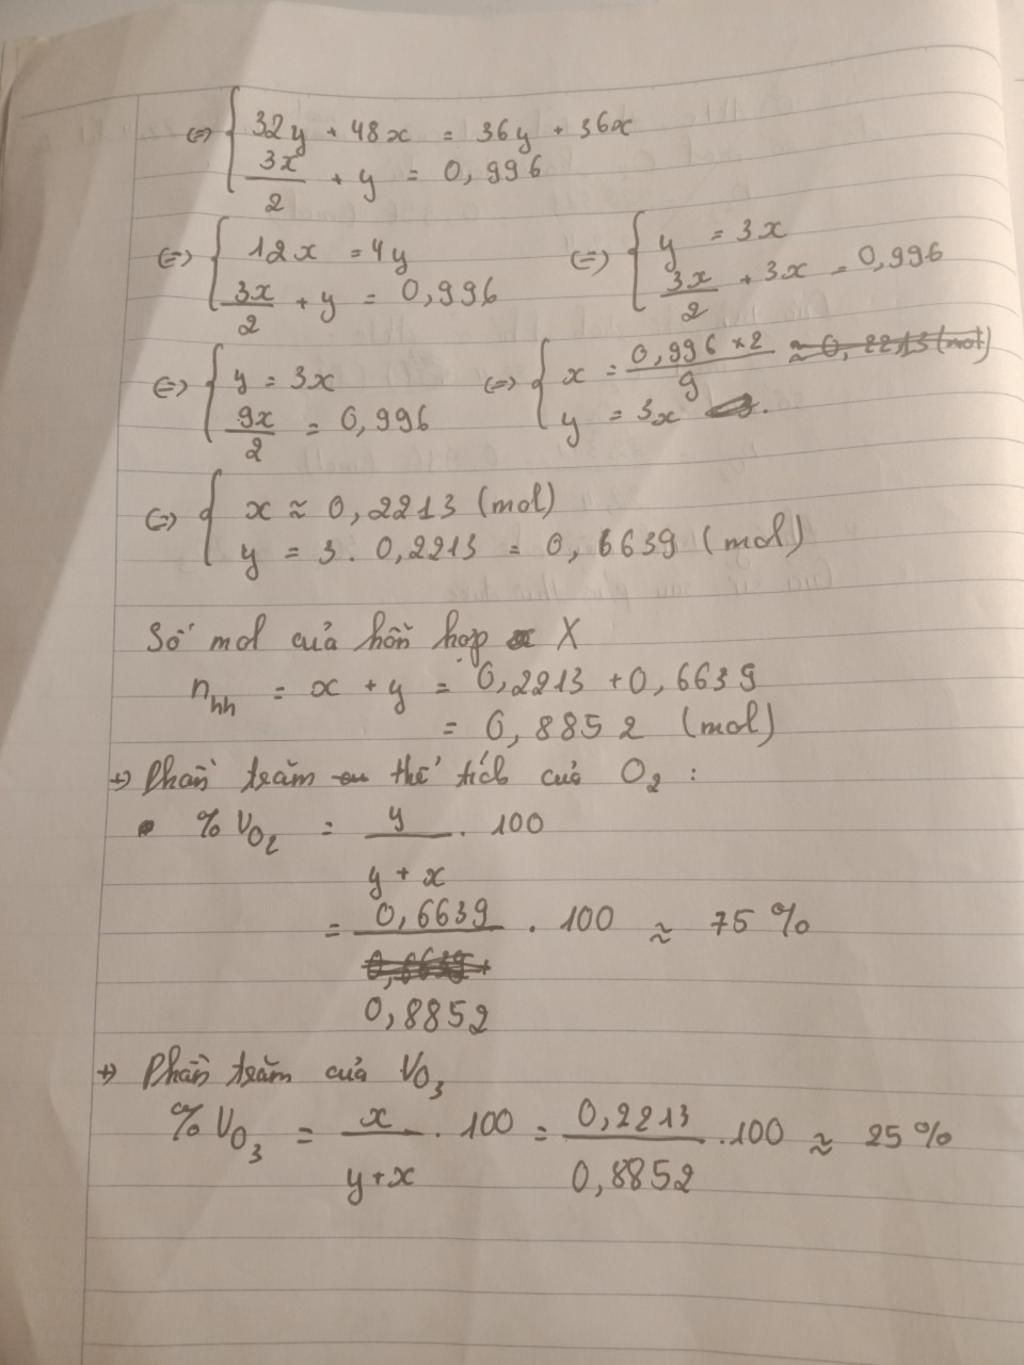 ⇔ { 32y + 48x = 36y + 36x
3x/2 + y = 0,996
⇔ { 12x = 4y ⇔ { y = 3x
3x/2 + y = 0,996 3x/2 + 3x = 0,996
⇔ { y = 3x ⇔ { x = 0,996 × 2 / 9 ≈ 0,2213 (mol)
9x/2 = 0,996 y = 3x
⇔ { x ≈ 0,2213 (mol)
y = 3 . 0,2213 = 0,6639 (mol)
Số mol của hỗn hợp X
nhh = x + y = 0,2213 + 0,6639
= 0,8852 (mol)
→ Phần trăm thể tích của O2 :
% VO2 = y / y + x . 100
= 0,6639 / 0,8852 . 100 ≈ 75 %
→ Phần trăm của VO3
% VO3 = x / y + x . 100 = 0,2213 / 0,8852 . 100 ≈ 25 %